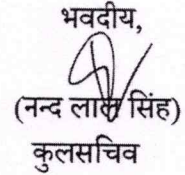 भवदीय,
(नन्द लाल सिंह)
कुलसचिव